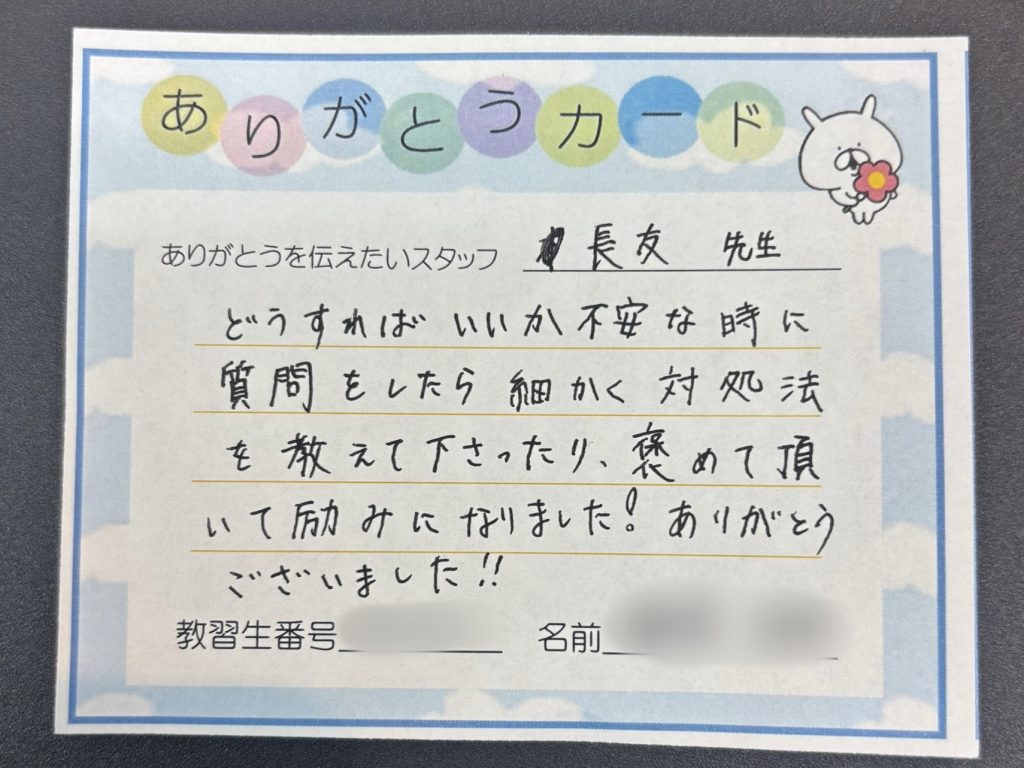 ありがとうカード
ありがとうを伝えたいスタッフ 長友 先生
どうすればいいか不安な時に
質問をしたら細かく対処法
を教えて下さったり、褒めて頂
いて励みになりました!ありがとう
ございました!!
教習生番号 名前